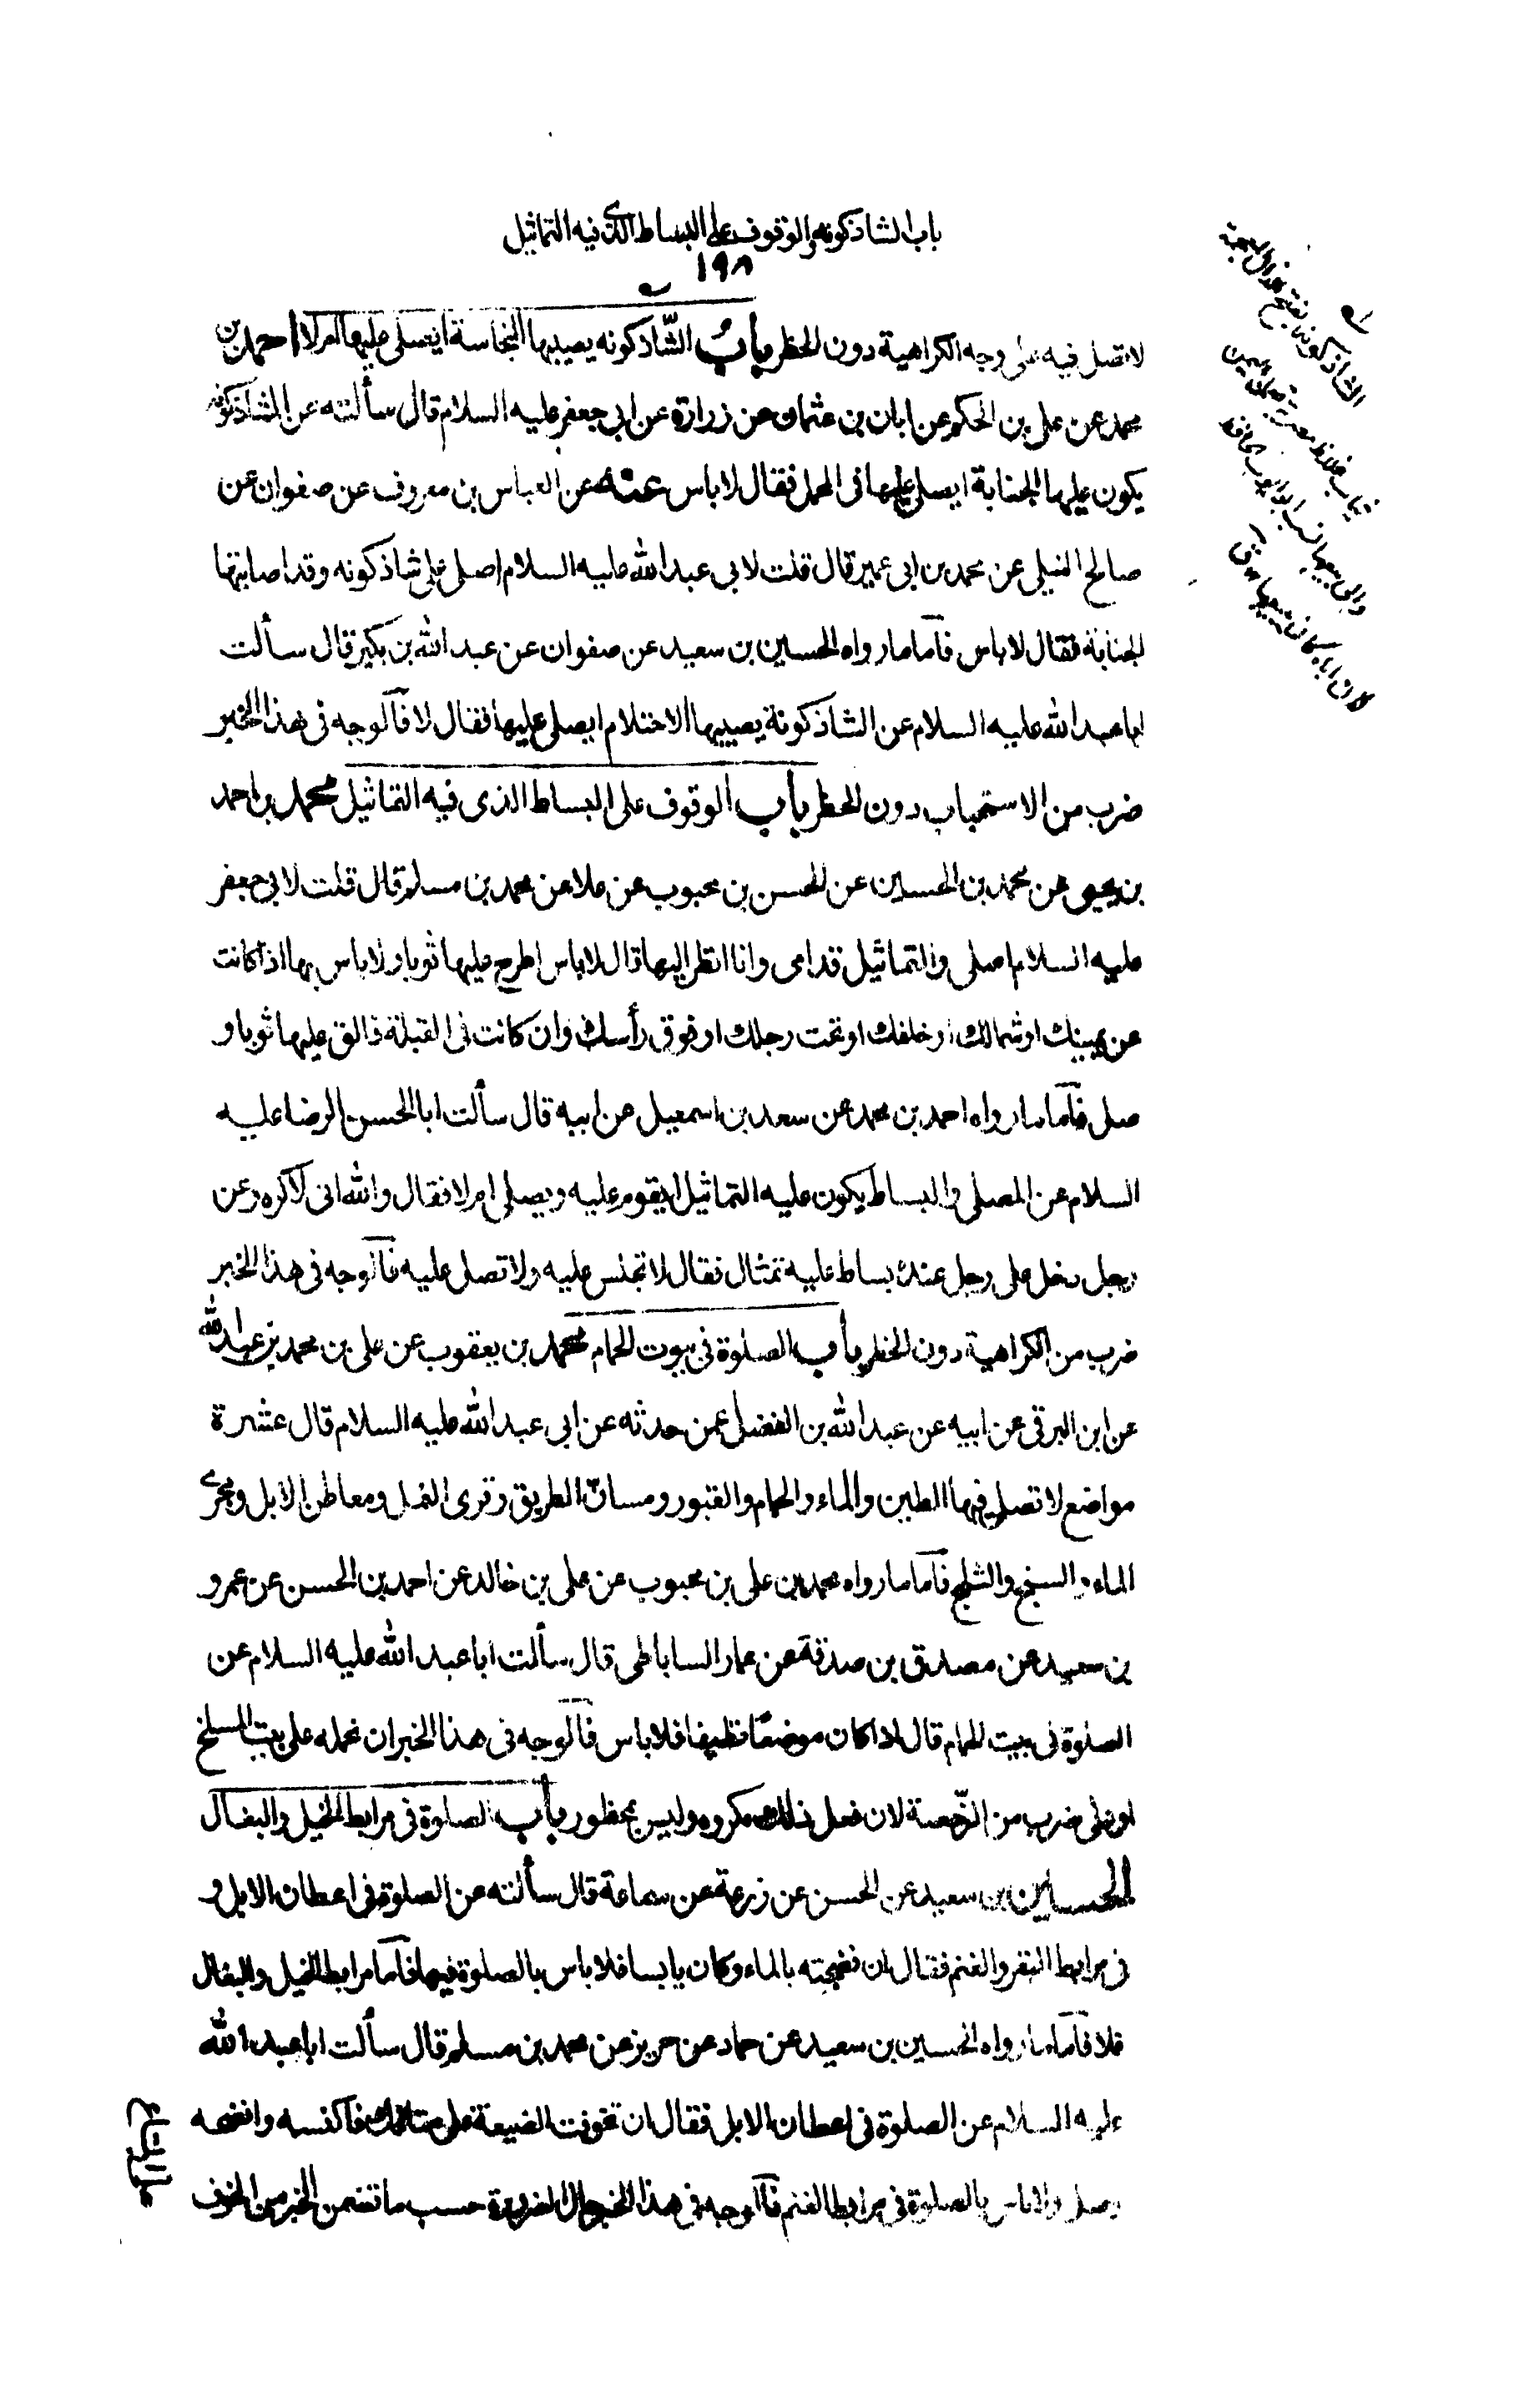 باب الشاذكونه والوقوف على البساط الذى فيه التماثيل
١٩٨
لا تصل فيه على وجه الكراهية دون الحظر باب الشّاذكونه يصيبها النجاسة ايصلى عليها ام لا احمد بن
محمد عن على بن الحكم عن ابان بن عثمان عن زرارة عن ابى جعفر عليه السلام قال سألته عن الشاذكونه
يكون عليها الجنابة ايصلى عليها فى المحمل فقال لا باس عنه عن العباس بن معروف عن صفوان عن
صالح النيلى عن محمد بن ابى عمير قال قلت لابى عبد الله عليه السلام اصلى على شاذكونه وقد اصابتها
الجنابة فقال لا باس فآما ما رواه الحسين بن سعيد عن صفوان عن عبد الله بن بكير قال سألت
ابا عبد الله عليه السلام عن الشاذكونة يصيبها الاحتلام ايصلى عليها فقال لا فآلوجه فى هذا الخبر
ضرب من الاستحباب دون الحظر باب الوقوف على البساط الذى فيه التماثيل محمد بن احمد
بن يحيى عن محمد بن الحسين عن الحسن بن محبوب عن علا عن محمد بن مسلم قال قلت لابى جعفر
عليه السلام اصلى والتماثيل قدامى وانا انظر اليها قال لا باس اطرح عليها ثوبا ولا باس بها اذا كانت
عن يمينك او شمالك او خلفك او تحت رجلك او فوق رأسك وان كانت فى القبلة فالق عليها ثوبا و
صلى فآما ما رواه احمد بن محمد عن سعد بن اسمعيل عن ابيه قال سألت ابا الحسن الرضا عليه
السلام عن المصلى والبساط يكون عليه التماثيل ايقوم عليه ويصلى ام لا فقال والله انى لاكره وعن
رجل دخل على رجل عنده بساط عليه تمثال فقال لا تجلس عليه ولا تصلى عليه فآلوجه فى هذا الخبر
ضرب من الكراهية دون الحظر باب الصلوة فى بيوت الحمام محمد بن يعقوب عن على بن محمد بن عبد الله
عن ابن البرقى عن ابيه عن عبد الله بن الفضل عمن حدثه عن ابى عبد الله عليه السلام قال عشرة
مواضع لا تصلى فيها الطين والماء والحمام والقبور ومسانّ الطريق وقرى النمل ومعاطن الابل ومجرى
الماء والسبخ والثلج فآما ما رواه محمد بن على بن محبوب عن على بن خالد عن احمد بن الحسن عن عمرو
بن سعيد عن مصدق بن صدقة عن عمار الساباطى قال سألت ابا عبد الله عليه السلام عن
الصلوة فى بيت الحمام قال اذا كان موضعًا نظيفا فلا باس فآلوجه فى هذا الخبر ان نحمله على بيت المسلخ
او على ضرب من الرّخصة لان فعل ذلك مكروه وليس بمحظور باب الصلوة فى مرابط الخيل والبغال
الحسين بن سعيد عن الحسن عن زرعة عن سماعة قال سألته عن الصلوة فى اعطان الابل و
فى مرابط البقر والغنم فقال ان نضحته بالماء وكان يابسا فلا باس بالصلوة فيها فآما مرابط الخيل والبغال
فلا فآما ما رواه الحسين بن سعيد عن حماد عن حريز عن محمد بن مسلم قال سألت ابا عبد الله
عليه السلام عن الصلوة فى اعطان الابل فقال ان تخوفت الضيعة على متاعك فاكنسه وانضحه
وصل ولا باس بالصلوة فى مرابط الغنم فآلوجه فى هذا الخبر حال الضرورة حسب ما تضمن الخبر من الخوف
على المتاع
الشاذكونة بفتح الذال المعجمة
ثياب غلاظ تعمل باليمن
والى بيعها نسب ابو ايوب الحافظ
لان اباه كان يبيعها ق